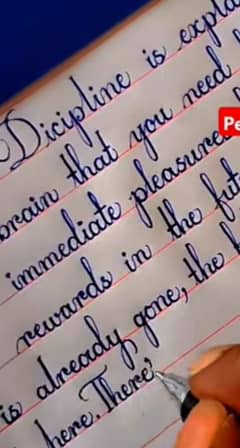 Dicipline is expla
brain that you need
immediate pleasure
rewards in the fut
is already gone, the
here. There
Pe